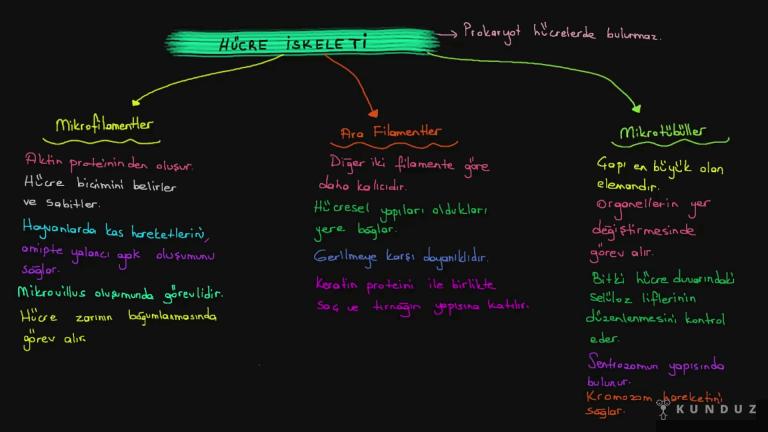 HÜCRE İSKELETİ
Prokaryot hücrelerde bulunmaz.
Mikrofilamentler
Aktin proteininden oluşur.
Hücre biçimini belirler
ve sabitler.
Hayvanlarda kas hareketlerini,
amipte yalancı ayak oluşumunu
sağlar.
Mikrovillus oluşumunda görevlidir.
Hücre zarının boğumlanmasında
görev alır.
Ara Filamentler
Diğer iki filamente göre
daha kalıcıdır.
Hücresel yapıları oldukları
yere bağlar.
Gerilmeye karşı dayanıklıdır.
Keratin proteini ile birlikte
saç ve tırnağın yapısına katılır.
Mikrotübüller
Çapı en büyük olan
elemandır.
Organellerin yer
değiştirmesinde
görev alır.
Bitki hücre duvarındaki
selüloz liflerinin
düzenlenmesini kontrol
eder.
Sentrozomun yapısında
bulunur.
Kromozom hareketini
sağlar.
KUNDUZ